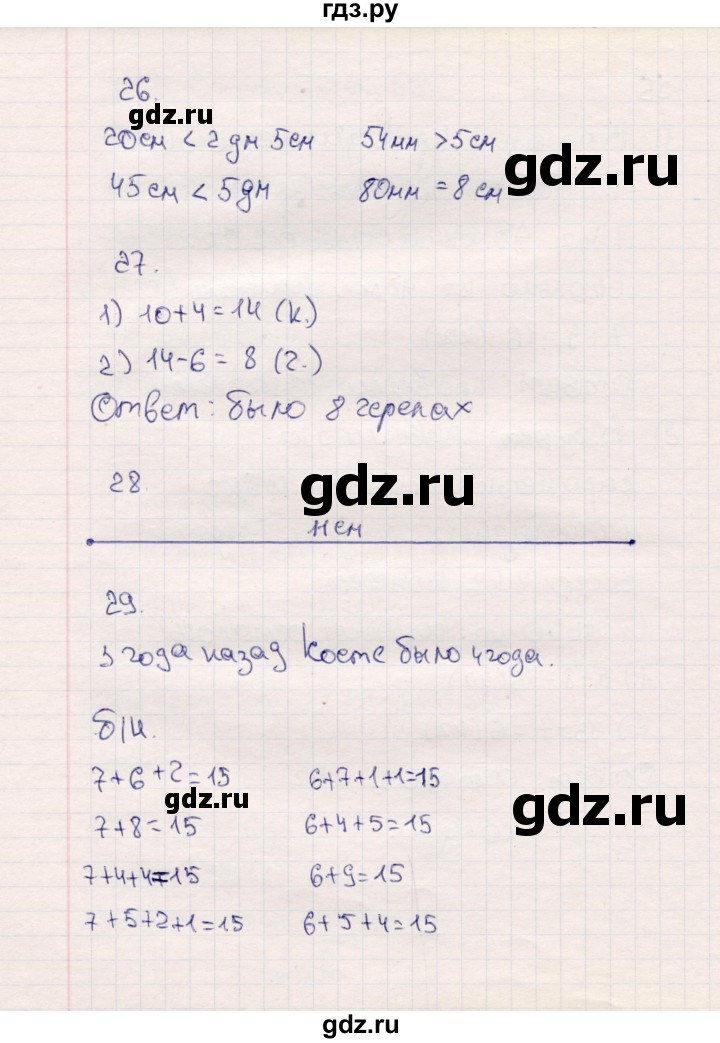 гдз.ру
26.
gdz.ru
20см < 2 дм 5см 54мм > 5см
gdz.ru
45см < 5дм 80мм = 8 см
27.
1) 10+4=14 (к.)
2) 14-6= 8 (г.)
Ответ: было 8 черепах
28.
gdz.ru
11 см
29.
3 года назад Косте было 4 года.
б/н.
7+6+2=15 6+7+1+1=15
gdz.ru
gdz.ru
7+8=15 6+4+5=15
7+4+4=15 6+9=15
7+5+2+1=15 6+5+4=15
gdz.ru